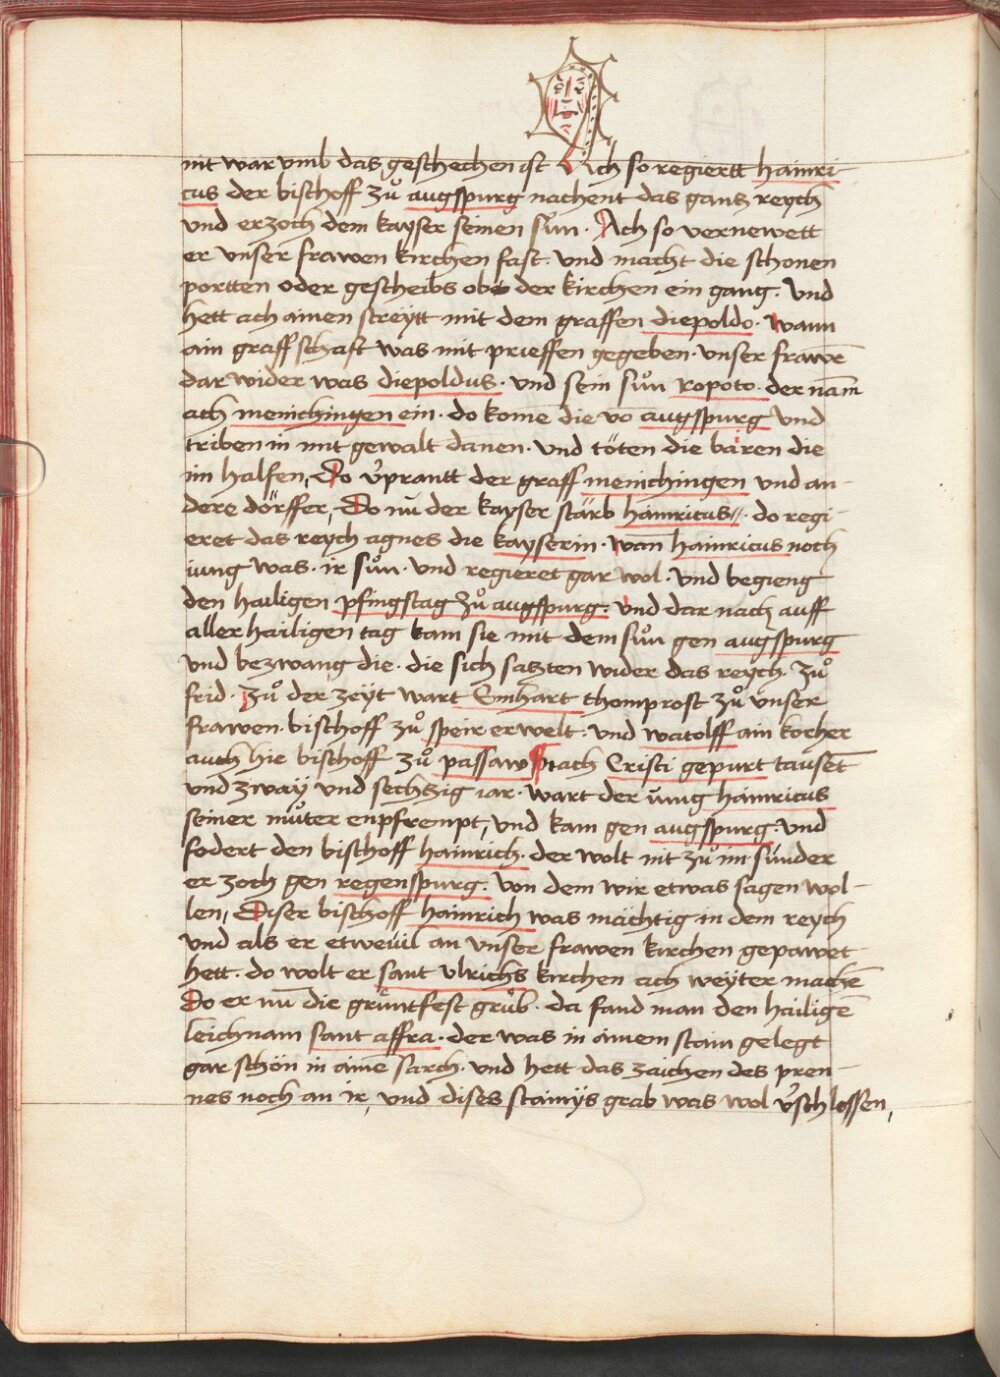 nit war umb das geschechen ist Ach so regiertt hainri-
cus der bischoff zů augspurg nachent das gantz reych
und erzoch dem kayser seinen sůn · Ach so vernewett
er unser frawen kirchen fast · und macht die schonen
portten oder gescheibs obe der kirchen ein gang · Und
hett ach ainen streytt mit dem graffen diepoldo · wann
ain graffschaft was mit prieffen gegeben · unser frawē
dar wider was diepoldus · und sein sůn ropoto · der nam̄
ach menichingen ein · do kome die vō augspurg und
triben in mit gewalt danen · und töten die bairen die
im halfen, Do v̓prantt der graff menichingen und an-
dere dörffer, Do nū der kayser starb hainricus · do regi-
eret das reych agnes die kayserin · wan̄ hainricus noch
iung was · ir sůn · und regieret gar wol · und begieng
den hailigen pfingstag zů augspurg · Und dar nach auff
aller hailigen tag kam sie mit dem sůn gen augspurg
und bezwang die · die sich satzten wider das reych · zů
frid · Zů der zeyt wart Einhart thomprost zů unser
frawen · bischoff zů speir erwelt · und watolff ain korher
auch hie bischoff zů passaw Nach Cristi gepurt tausēt
und zway und sechtzig iar · wart der iung hainricus
seiner můter enpfrempt, und kam gen augspurg · und
fodert den bischoff hainrich · der wolt nit zů im · sunder
er zoch gen regenspurg · von dem wir etwas sagen wol-
len, Diser bischoff hainrich was mächtig in dem reych
und als er etwevil an unser frawen kirchen gepawet
hett · do wolt er sant Ulrichs kirchen ach weyter machē
Do er nū die gruntfest grůb · da fand man den hailigē
leichnam sant affra · der was in ainem stain gelegt
gar schön in ainē sarch · und hett das zaichen des pren-
nes noch an ir, und dises stainys grab was wol v̓schlossen,